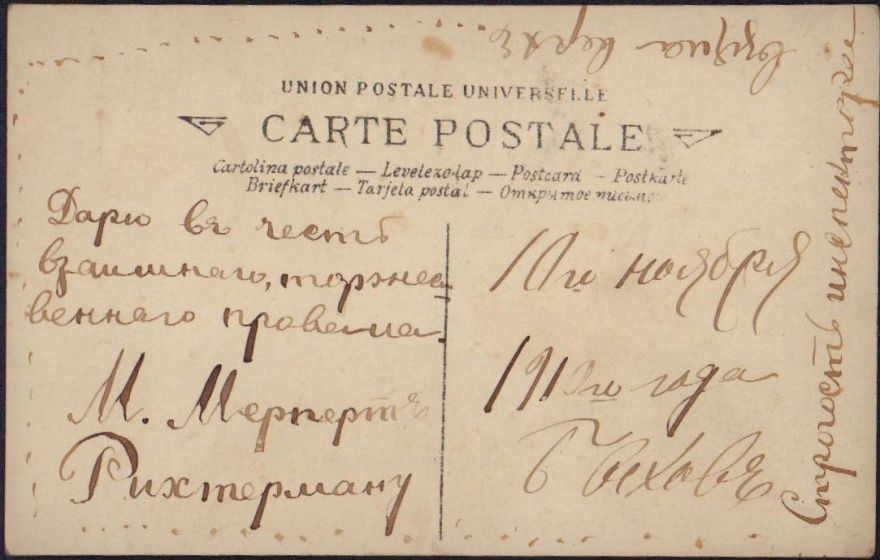 UNION POSTALE UNIVERSELLE
CARTE POSTALE
Cartolina postale — Levelezo-lap — Postcard — Postkarte
Briefkart — Tarjeta postal — Открытое письмо
Дарю въ честь
взаимнаго, торжест-
веннаго провала.
М. Мерпертъ
Рихтерману
10го ноября
1910го года
Быховъ
Строгость инспектора
верхъ